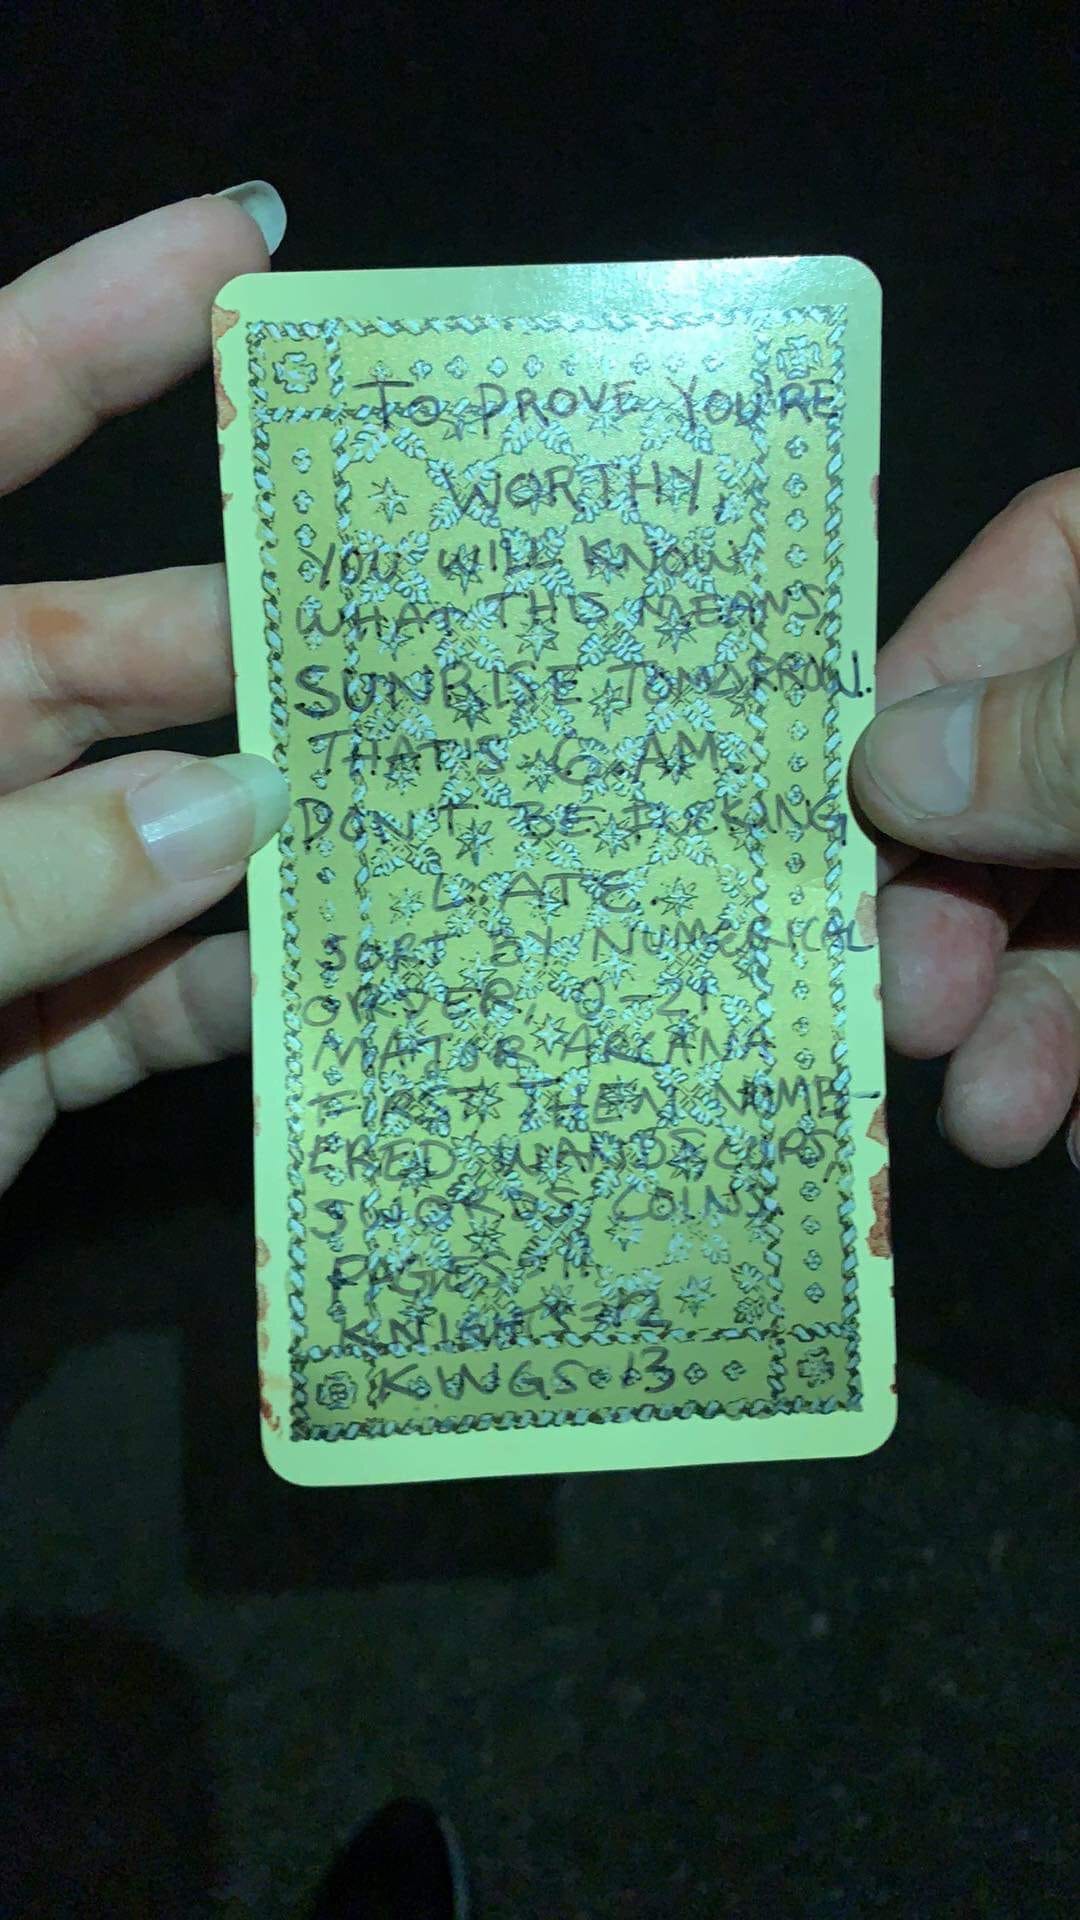 TO PROVE YOU'RE
WORTHY,
YOU WILL KNOW
WHAT THIS MEANS,
SUNRISE TOMORROW.
THAT'S 6 AM.
DON'T BE FUCKING
LATE.
SORT BY NUMERICAL
ORDER, 0-21
MAJOR ARCANA
FIRST THEN NUMB-
ERED WANDS CUPS,
SWORDS COINS
PAGES = 11
KNIGHTS = 12
KINGS 13